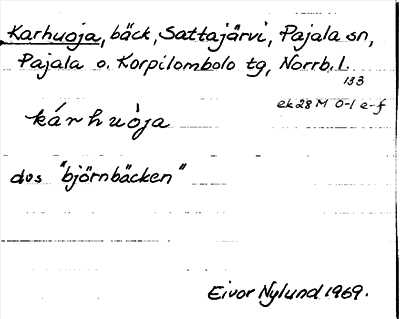 Karhuoja, bäck, Sattajärvi, Pajala sn,
Pajala o. Korpilombolo tg, Norrb. l.
133
ek 28 M 0-1 e-f
kárhuòja
dvs "björnbäcken"
Eivor Nylund 1969.